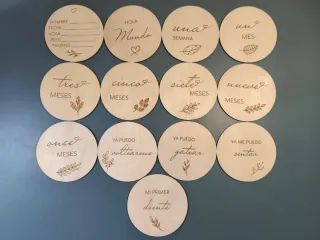 NOMBRE
FECHA
HORA
PESO
HOLA
Mundo
una
SEMANA
un
MES
tres
MESES
cinco
MESES
siete
MESES
nueve
MESES
once
MESES
YA PUEDO
voltearme
YA PUEDO
gatear
YA ME PUEDO
sentar
MI PRIMER
diente